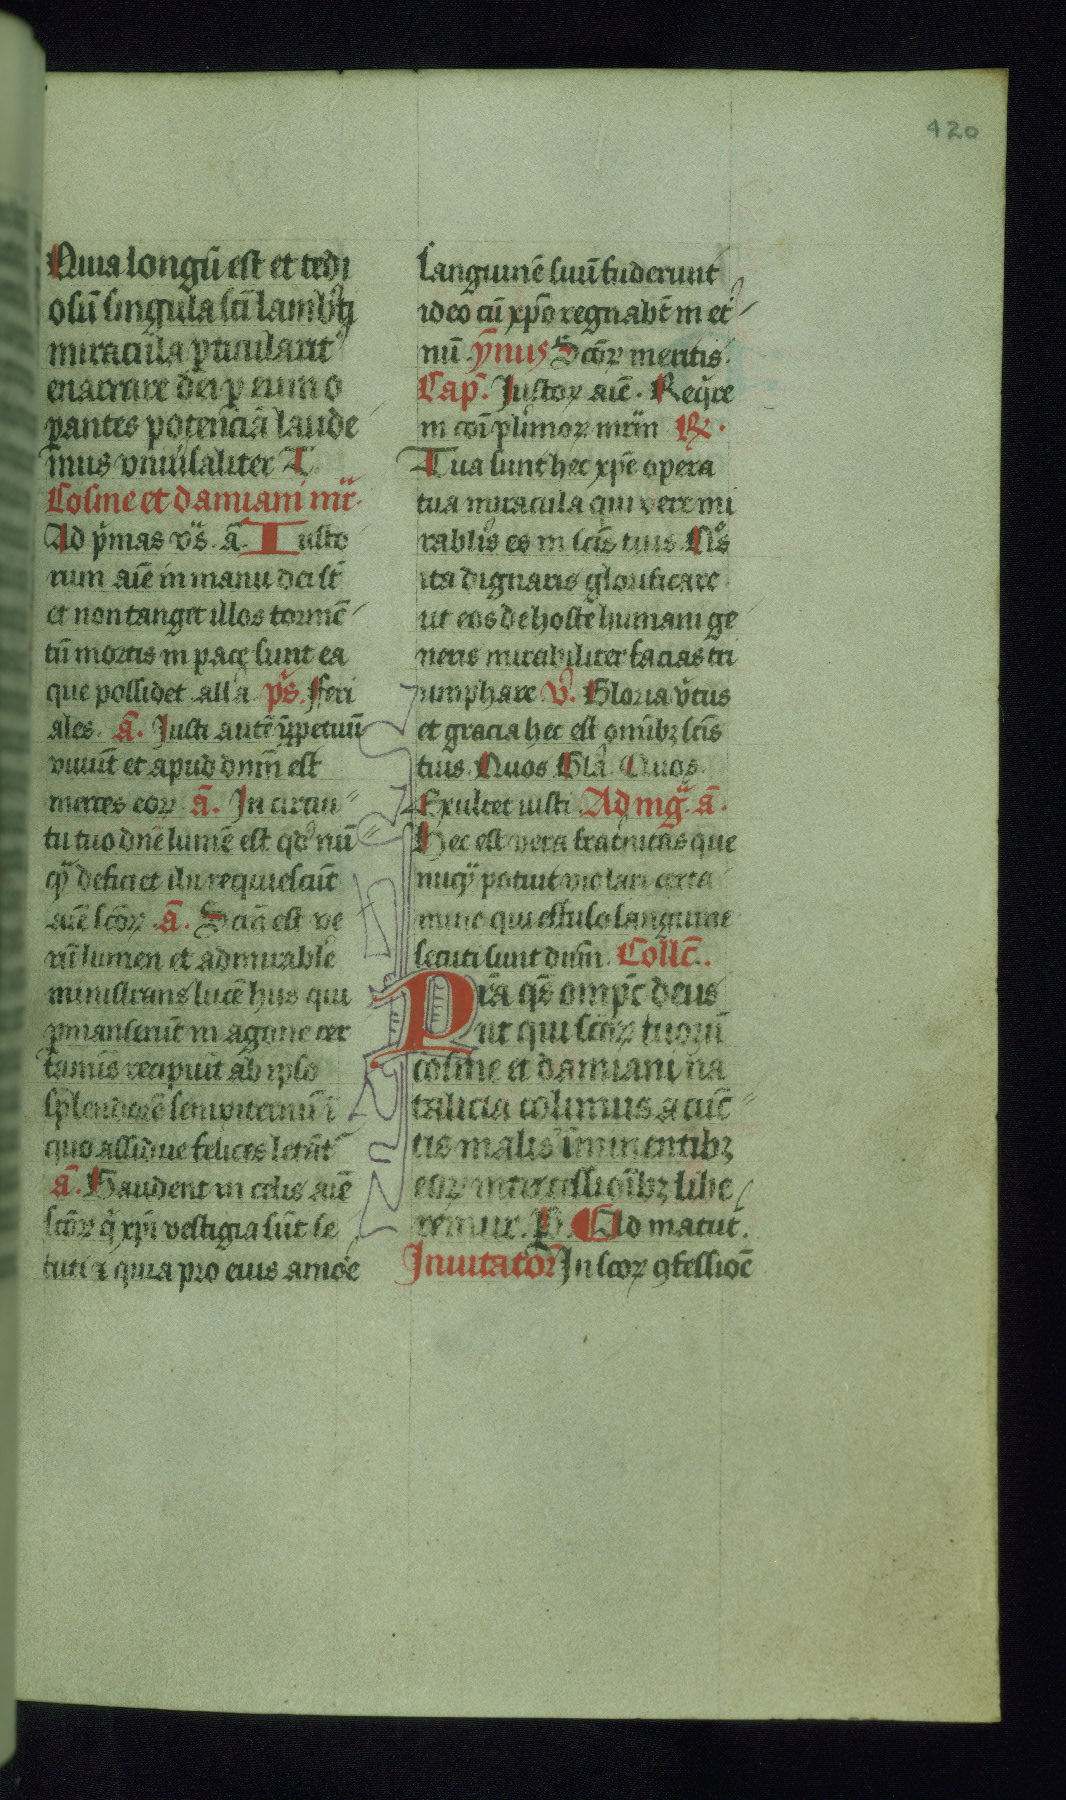 420
Quia longū est et tedi
osū singula scī lamb̄ti
miracula p̱ticularit᷑
enarrare dei p̱ eum o
pantes potenciā laude
mus vniu̓saliter T
Cosme et damiani mr̄
Ad p̓mas vs̄ ā Iusto
rum aīe in manu dei sт̄
et non tanget illos tormē
tū mortis in pace sunt ea
que possidet all'a ps̄ fferi
ales ā. Justi autē ī p̱petuū
viuūt et apud dnm̄ est
merces eoꝝ ā. In circui
tu tuo dnē lumē est qd̓ nū
q̄ deficiet ibi requiescūt
aīe scōꝝ ā. Sciā est ve
rū lumen et admirable
ministrans lucē hijs qui
p̱manserūt in agone cer
tamīs recipiūt ab ipso
splendorē sempiternū ī
quo assidue felices letāt᷑
ā. Gaudent in celis aīe
scōꝝ q̄ xpī vestigia sūt se
cuti ⁊ quia pro eius amōe
sanguinē suū fuderunt
ideo cū xpō regnabt̄ in et̓
nū ymus Scōꝝ meritis.
Cap̄. Justoꝝ aīe. Reqr̄e
in coī plimoꝝ mrm̄ R̷.
Tua sunt hec xpē opera
tua miracula qui vere mi
rablis es in scīs tuis Qs̓
ita dignaris glorificare
ut eos de hoste humani ge
neris mirabiliter facias tri
umphare v̓. Gloria v̓tus
et gracia hec est omībꝫ scīs
tuis Quos Glā Quos
Exultet iusti Ad mḡ ā.
Hec est vera frat̓nitas que
nūq̄ potuit violari certa
mine qui effuso sanguine
secuti sunt dnm̄. Collc̄.
Pr̄a qs̄ omp̄c deus
ut qui scōꝝ tuoꝝ
cosme et damiani na
talicia colimus a cūc
tis malis īminentibꝫ
eoꝝ intercessiōibꝫ libe
remur. P̱. Ad matut̄.
Inuitatoꝝ In scoꝝ ꝯfessioē